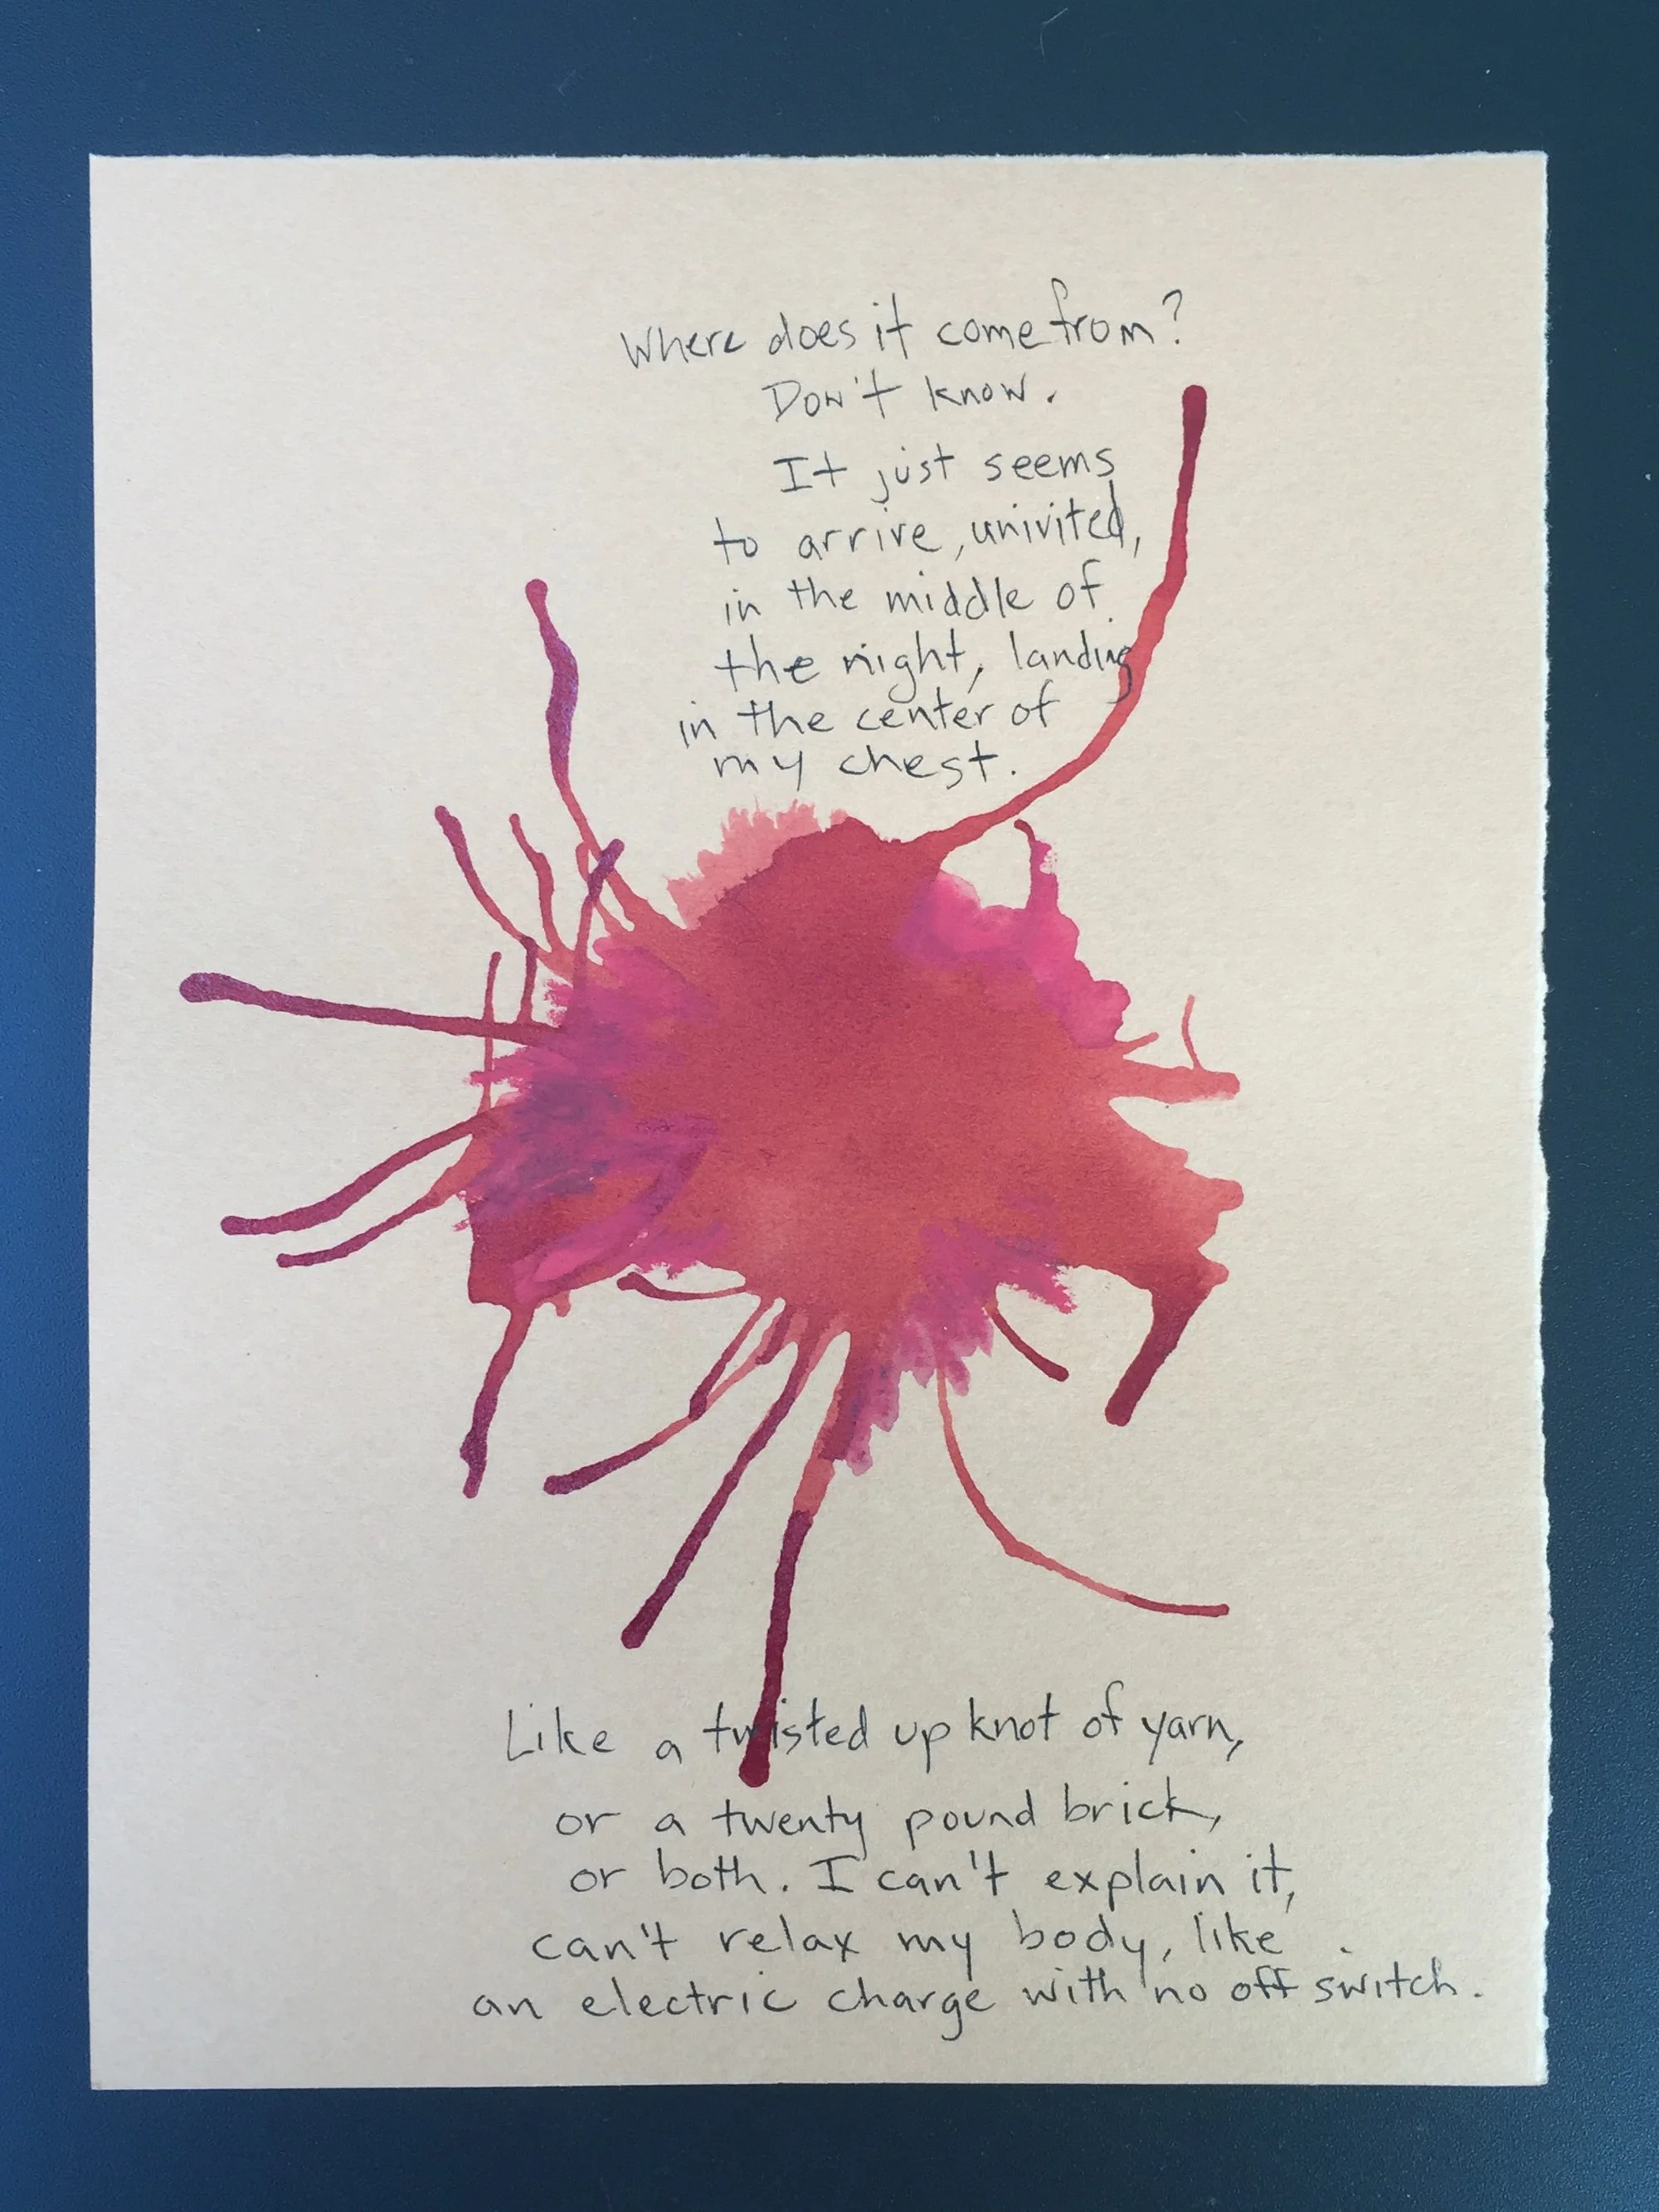 Where does it come from?
Don't know.
It just seems
to arrive, univited,
in the middle of
the night, landing
in the center of
my chest.
Like a twisted up knot of yarn,
or a twenty pound brick,
or both. I can't explain it,
can't relax my body, like
an electric charge with no off switch.